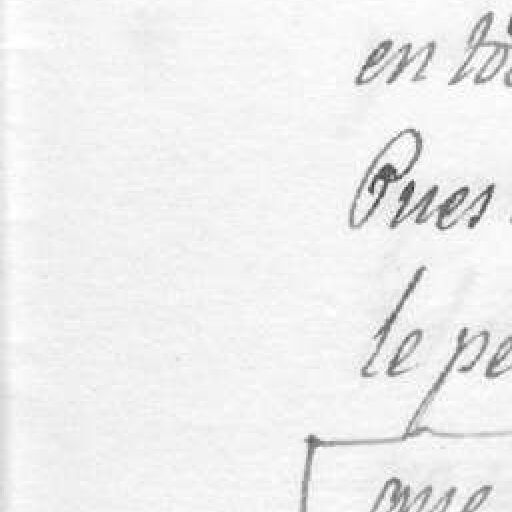 en
Pues
le pe
que